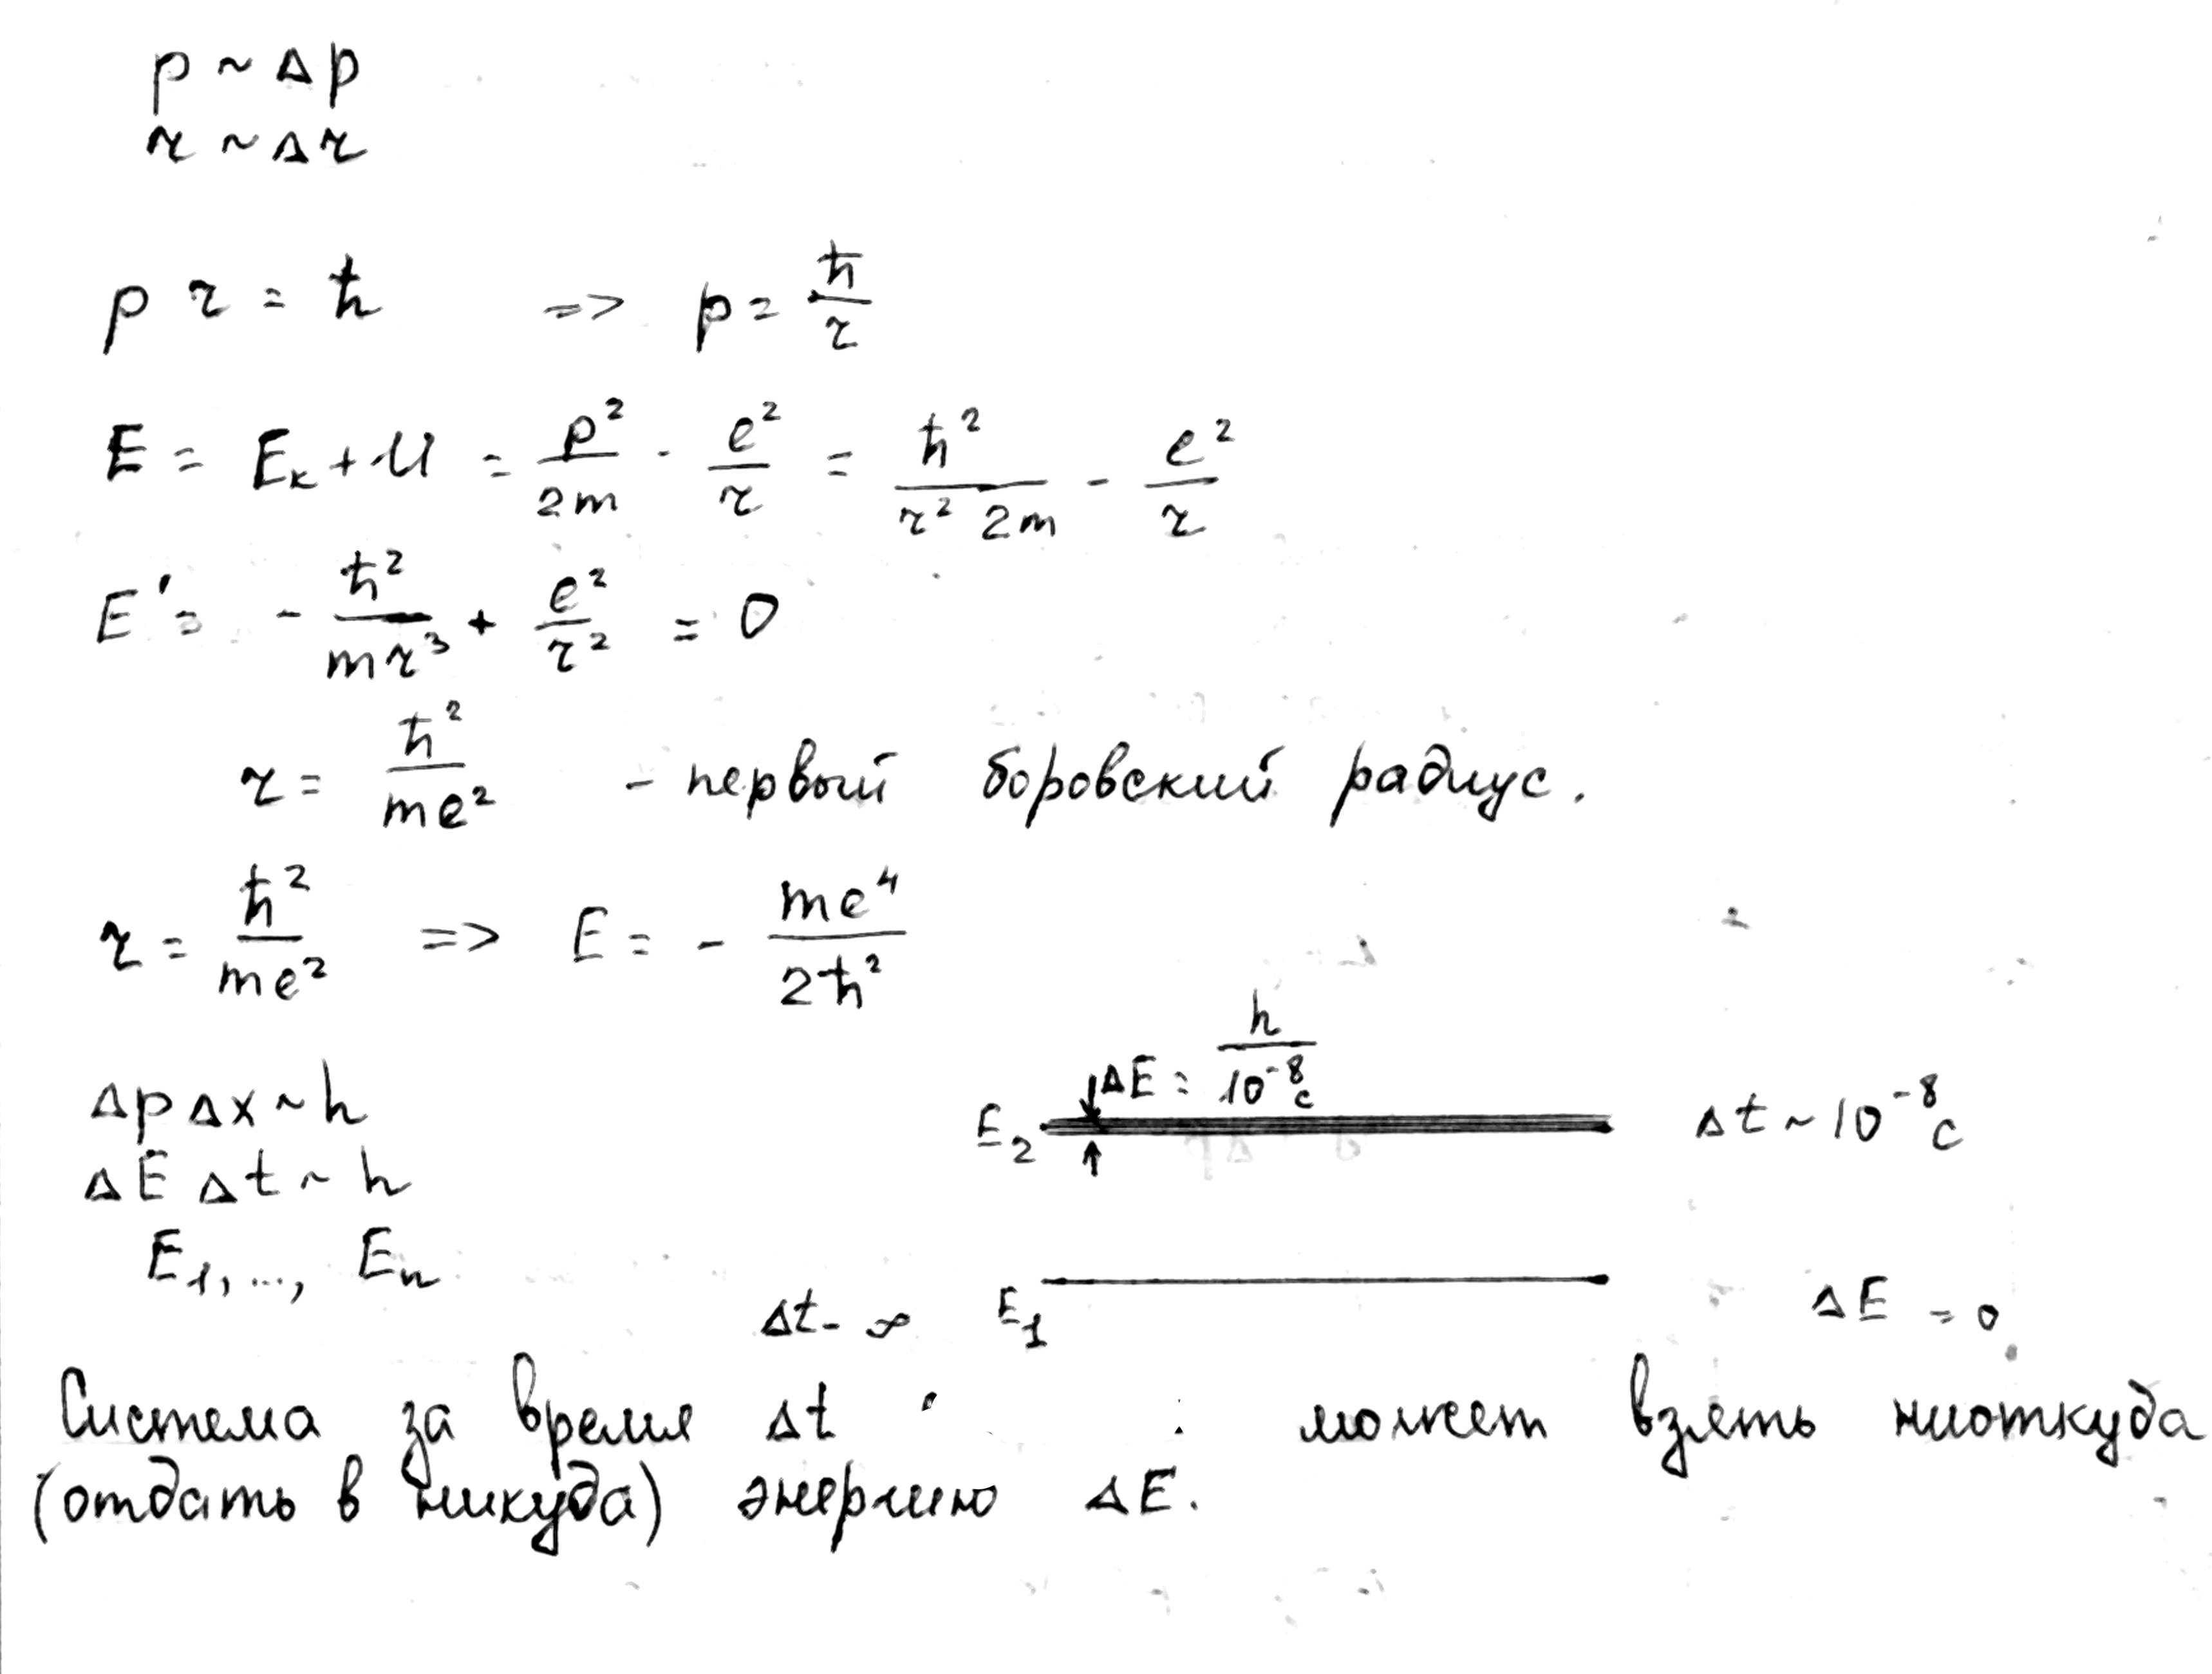 p ~ Δp
r ~ Δr
p r = ħ => p = ħ/r
E = Eₖ + U = p²/2m - e²/r = ħ²/r² 2m - e²/r
E' = - ħ²/mr³ + e²/r² = 0
r = ħ²/me² - первый боровский радиус.
r = ħ²/me² => E = - me⁴/2ħ²
ΔE = h/10⁻⁸ с
ΔpΔx ~ h
E₂ Δt ~ 10⁻⁸ с
ΔE Δt ~ h
E₁, ..., Eₙ
Δt - ∞ E₁ ΔE = 0
Система за время Δt может взять ниоткуда
(отдать в никуда) энергию ΔE.